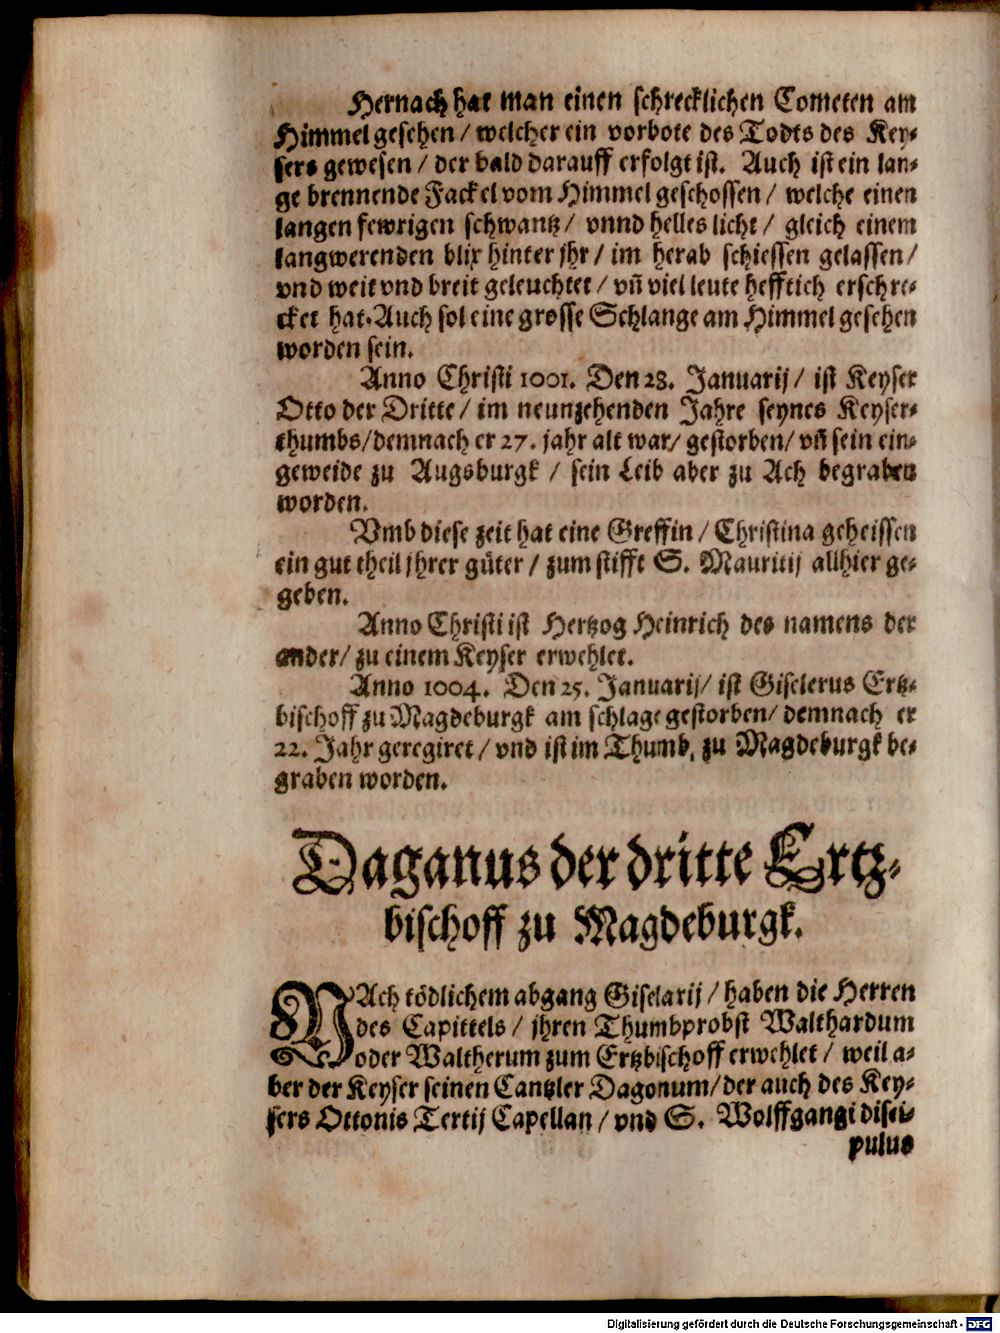 Hernach hat man einen schrecklichen Cometen am
Himmel gesehen / welcher ein vorbote des Todts des Key-
sers gewesen / der bald darauff erfolgt ist. Auch ist ein lan-
ge brennende Fackel vom Himmel geschossen / welche einen
langen fewrigen schwantz / vnnd helles licht / gleich einem
langwerenden blix hinter jhr / im herab schiessen gelassen /
vnd weit vnd breit geleuchtet / vñ viel leute hefftich erschre-
cket hat. Auch sol eine grosse Schlange am Himmel gesehen
worden sein.
Anno Christi 1001. Den 28. Januarij / ist Keyser
Otto der Dritte / im neunzehenden Jahre seynes Keyser-
thumbs / demnach er 27. jahr alt war / gestorben / vñ sein ein-
geweide zu Augsburgk / sein Leib aber zu Ach begraben
worden.
Vmb diese zeit hat eine Greffin / Christina geheissen
ein gut theil jhrer güter / zum stifft S. Mauritij allhier ge-
geben.
Anno Christi ist Hertzog Heinrich des namens der
ander / zu einem Keyser erwehlet.
Anno 1004. Den 25. Januarij / ist Giselerus Ertz-
bischoff zu Magdeburgk am schlage gestorben / demnach er
22. Jahr geregiret / vnd ist im Thumb, zu Magdeburgk be-
graben worden.
Daganus der dritte Ertz-
bischoff zu Magdeburgk.
NAch tödlichem abgang Giselarij / haben die Herren
des Capittels / jhren Thumbprobst Walthardum
oder Waltherum zum Ertzbischoff erwehlet / weil a-
ber der Keyser seinen Cantzler Dagonum / der auch des Key-
sers Ottonis Tertij Capellan / vnd S. Wolffgangi disci-
pulus
Digitalisierung gefördert durch die Deutsche Forschungsgemeinschaft - DFG